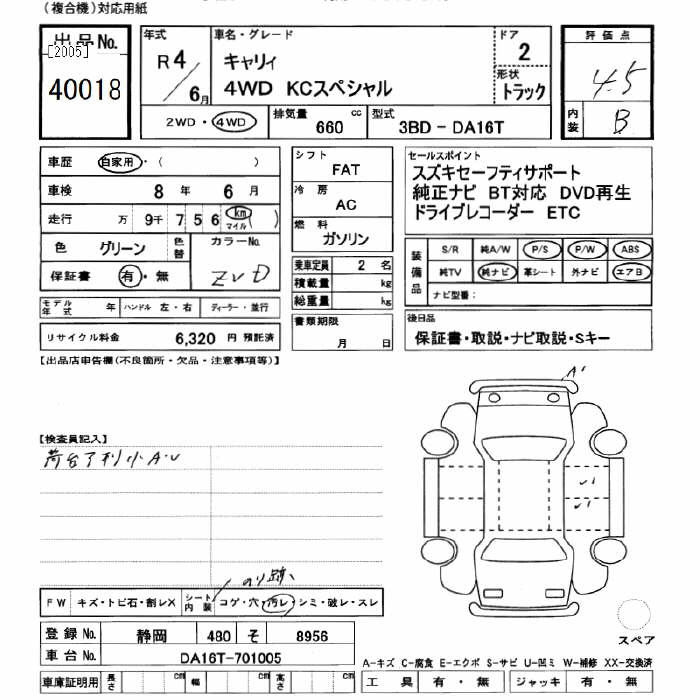 (複合機)対応用紙
出品No.
[2005]
40018
年式
R4
6月
車名・グレード
キャリィ
4WD KCスペシャル
ドア
2
形状
トラック
評価点
4.5
内装
B
2WD・4WD
排気量
660 cc
型式
3BD - DA16T
車歴 自家用・( )
車検 8年 6月
走行 万 9千 7 5 6 km マイル
色 グリーン 色替
カラーNo.
ZVD
保証書 有・無
シフト
FAT
冷房
AC
燃料
ガソリン
乗車定員 2 名
積載量 kg
総重量 kg
書類期限
月 日
セールスポイント
スズキセーフティサポート
純正ナビ BT対応 DVD再生
ドライブレコーダー ETC
装備品
S/R 純A/W P/S P/W ABS
純TV 純ナビ 革シート 外ナビ エアB
ナビ型番:
モデル年式 年 ハンドル 左・右 ディーラー・並行
リサイクル料金 6,320 円 預託済
後日品
保証書・取説・ナビ取説・Sキー
【出品店申告欄(不良箇所・欠品・注意事項等)】
【検査員記入】
荷台アオリ小A・U
のり跡、
FW キズ・トビ石・割レX シート内装 コゲ・穴・汚レ・シミ・破レ・スレ
登録No. 静岡 480 そ 8956
車台No. DA16T-701005
車庫証明用 長さ cm 幅 cm 高さ cm
A'
スペア
A-キズ C-腐食 E-エクボ S-サビ U-凹ミ W-補修 XX-交換済
工具 有・無 ジャッキ 有・無